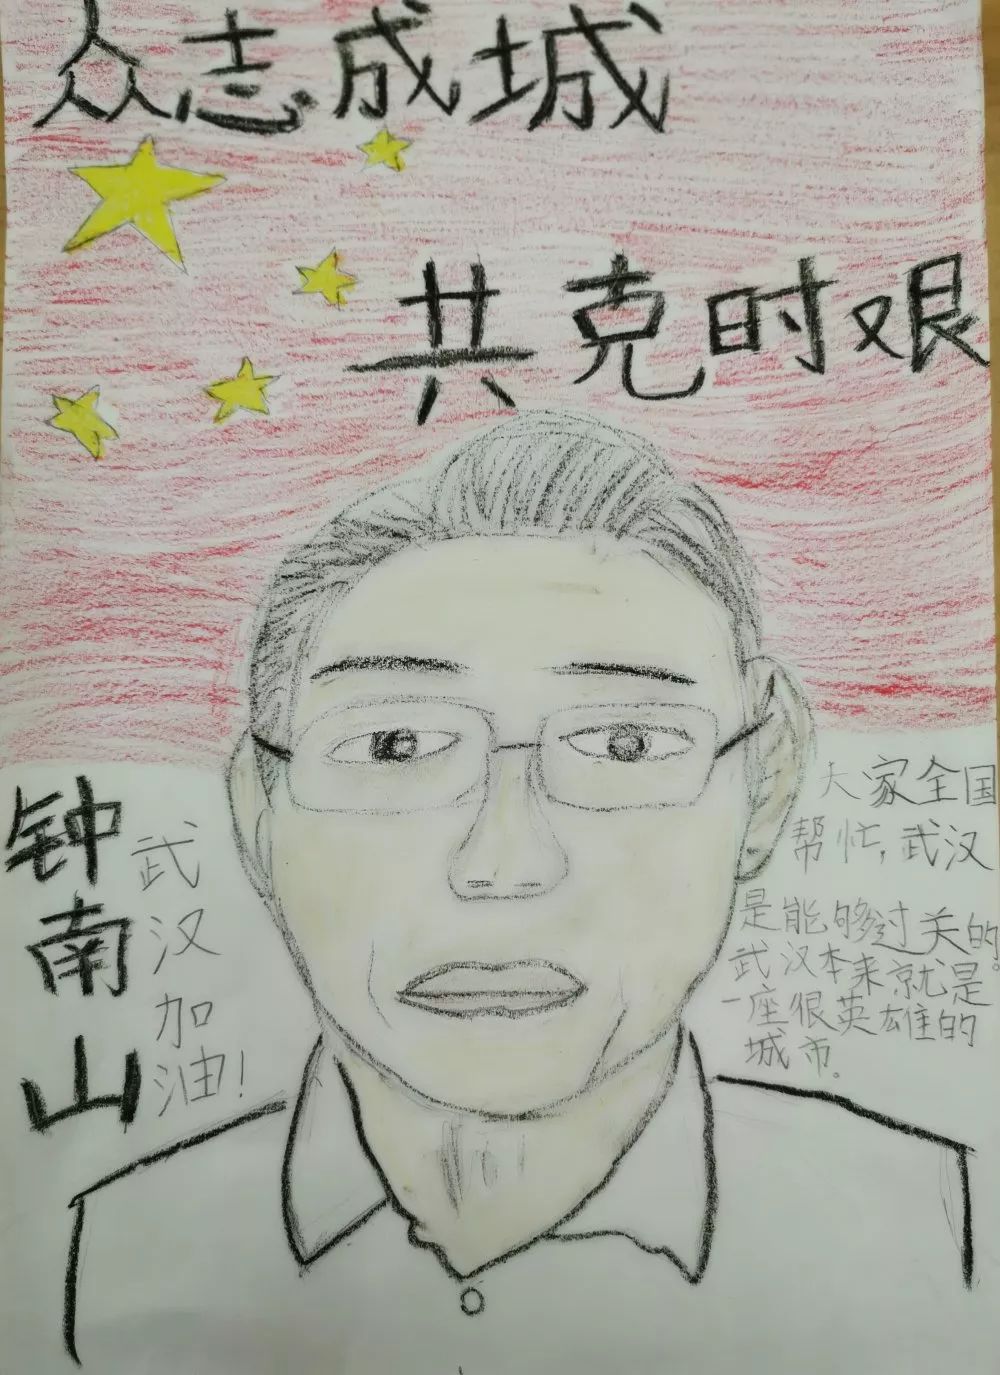 众志成城
共克时艰
钟南山
武汉加油！
大家全国
帮忙，武汉
是能够过关的。
武汉本来就是
一座很英雄的
城市。